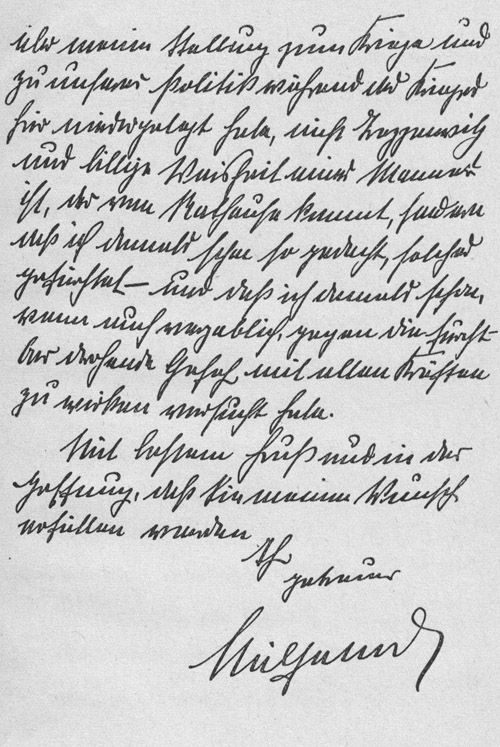 über meine Stellung zum Kriege und
zu unserer Politik während des Krieges
hier niedergelegt habe, nicht Treppenwitz
und billige Weisheit eines Mannes
ist, der vom Rathause kommt, sondern
daß ich damals schon so gedacht, solches
gefürchtet – und daß ich damals schon,
wenn auch vergeblich, gegen die furcht-
bar drohende Gefahr mit allen Kräften
zu wirken versucht habe.
Mit bestem Gruß und in der
Hoffnung, daß Sie meinen Wunsch
erfüllen werden
Ihr
getreuer